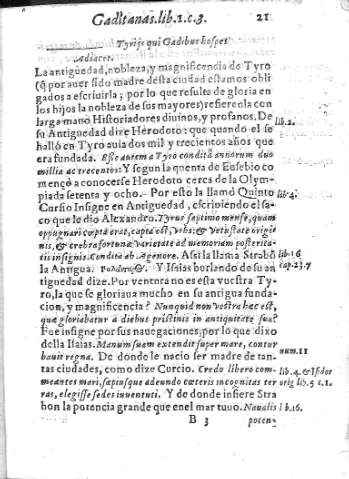 Gaditanas. lib. 1. c. 3. 21
Tyrijs qui Gadibus hospes
Adiacet.
La antiguedad, nobleza, y magnificencia de Tyro
(q̃ por auer sido madre desta ciudad estamos obli
gados a escriuirla; por lo que resulta de gloria en
los hijos la nobleza de sus mayores) refierenla con
larga mano Historiadores diuinos, y profanos. De
su Antiguedad dize Herodoto: que quando el se lib. 2.
halló en Tyro auia dos mil y trecientos años que
era fundada. Esse autem a Tyro condita annorum duo
millia ac trecentos: Y segun la quenta de Eusebio co
mençò a conocerse Herodoto cerca de la Olym-
piada setenta y ocho. Por esto la llamó Quinto
Cursio Insigne en Antiguedad, escriuiendo el sa- lib. 4.
co que le dio Alexandro. Tyrus septimo mense, quam
oppugnari cœpta erat, capta est, vrbs: & vetustate origi-
nis, & crebra fortunæ varietate ad memoriam posterita-
tis insignis. Condita ab Agenore. Assi la llama Strabõ lib. 16
la Antigua. Y Isaias burlando de su an cap. 23. 7
tiguedad dize. Por ventura no es esta vuestra Ty-
ro, la que se gloriaua mucho en su antigua funda-
cion, y magnificencia? Nunquid non vestra hæc est,
quæ gloriabatur à diebus pristinis in antiquitate sua?
Fue insigne por sus nauegaciones; por lo que dixo
della Isaias. Manum suam extendit super mare, contur
bauit regna. De donde le nacio ser madre de tan- num. 11
tas ciudades, como dize Curcio. Credo libero com- lib. 4. & Isidor
meantes mari, sæpiusque adeundo cæteris incognitas ter orig lib. 5 c. 1.
ras, elegisse sedes iuuentuti. Y de donde infiere Stra
bon la potencia grande que en el mar tuuo. Naualis l b. 16.
B 3 poten-